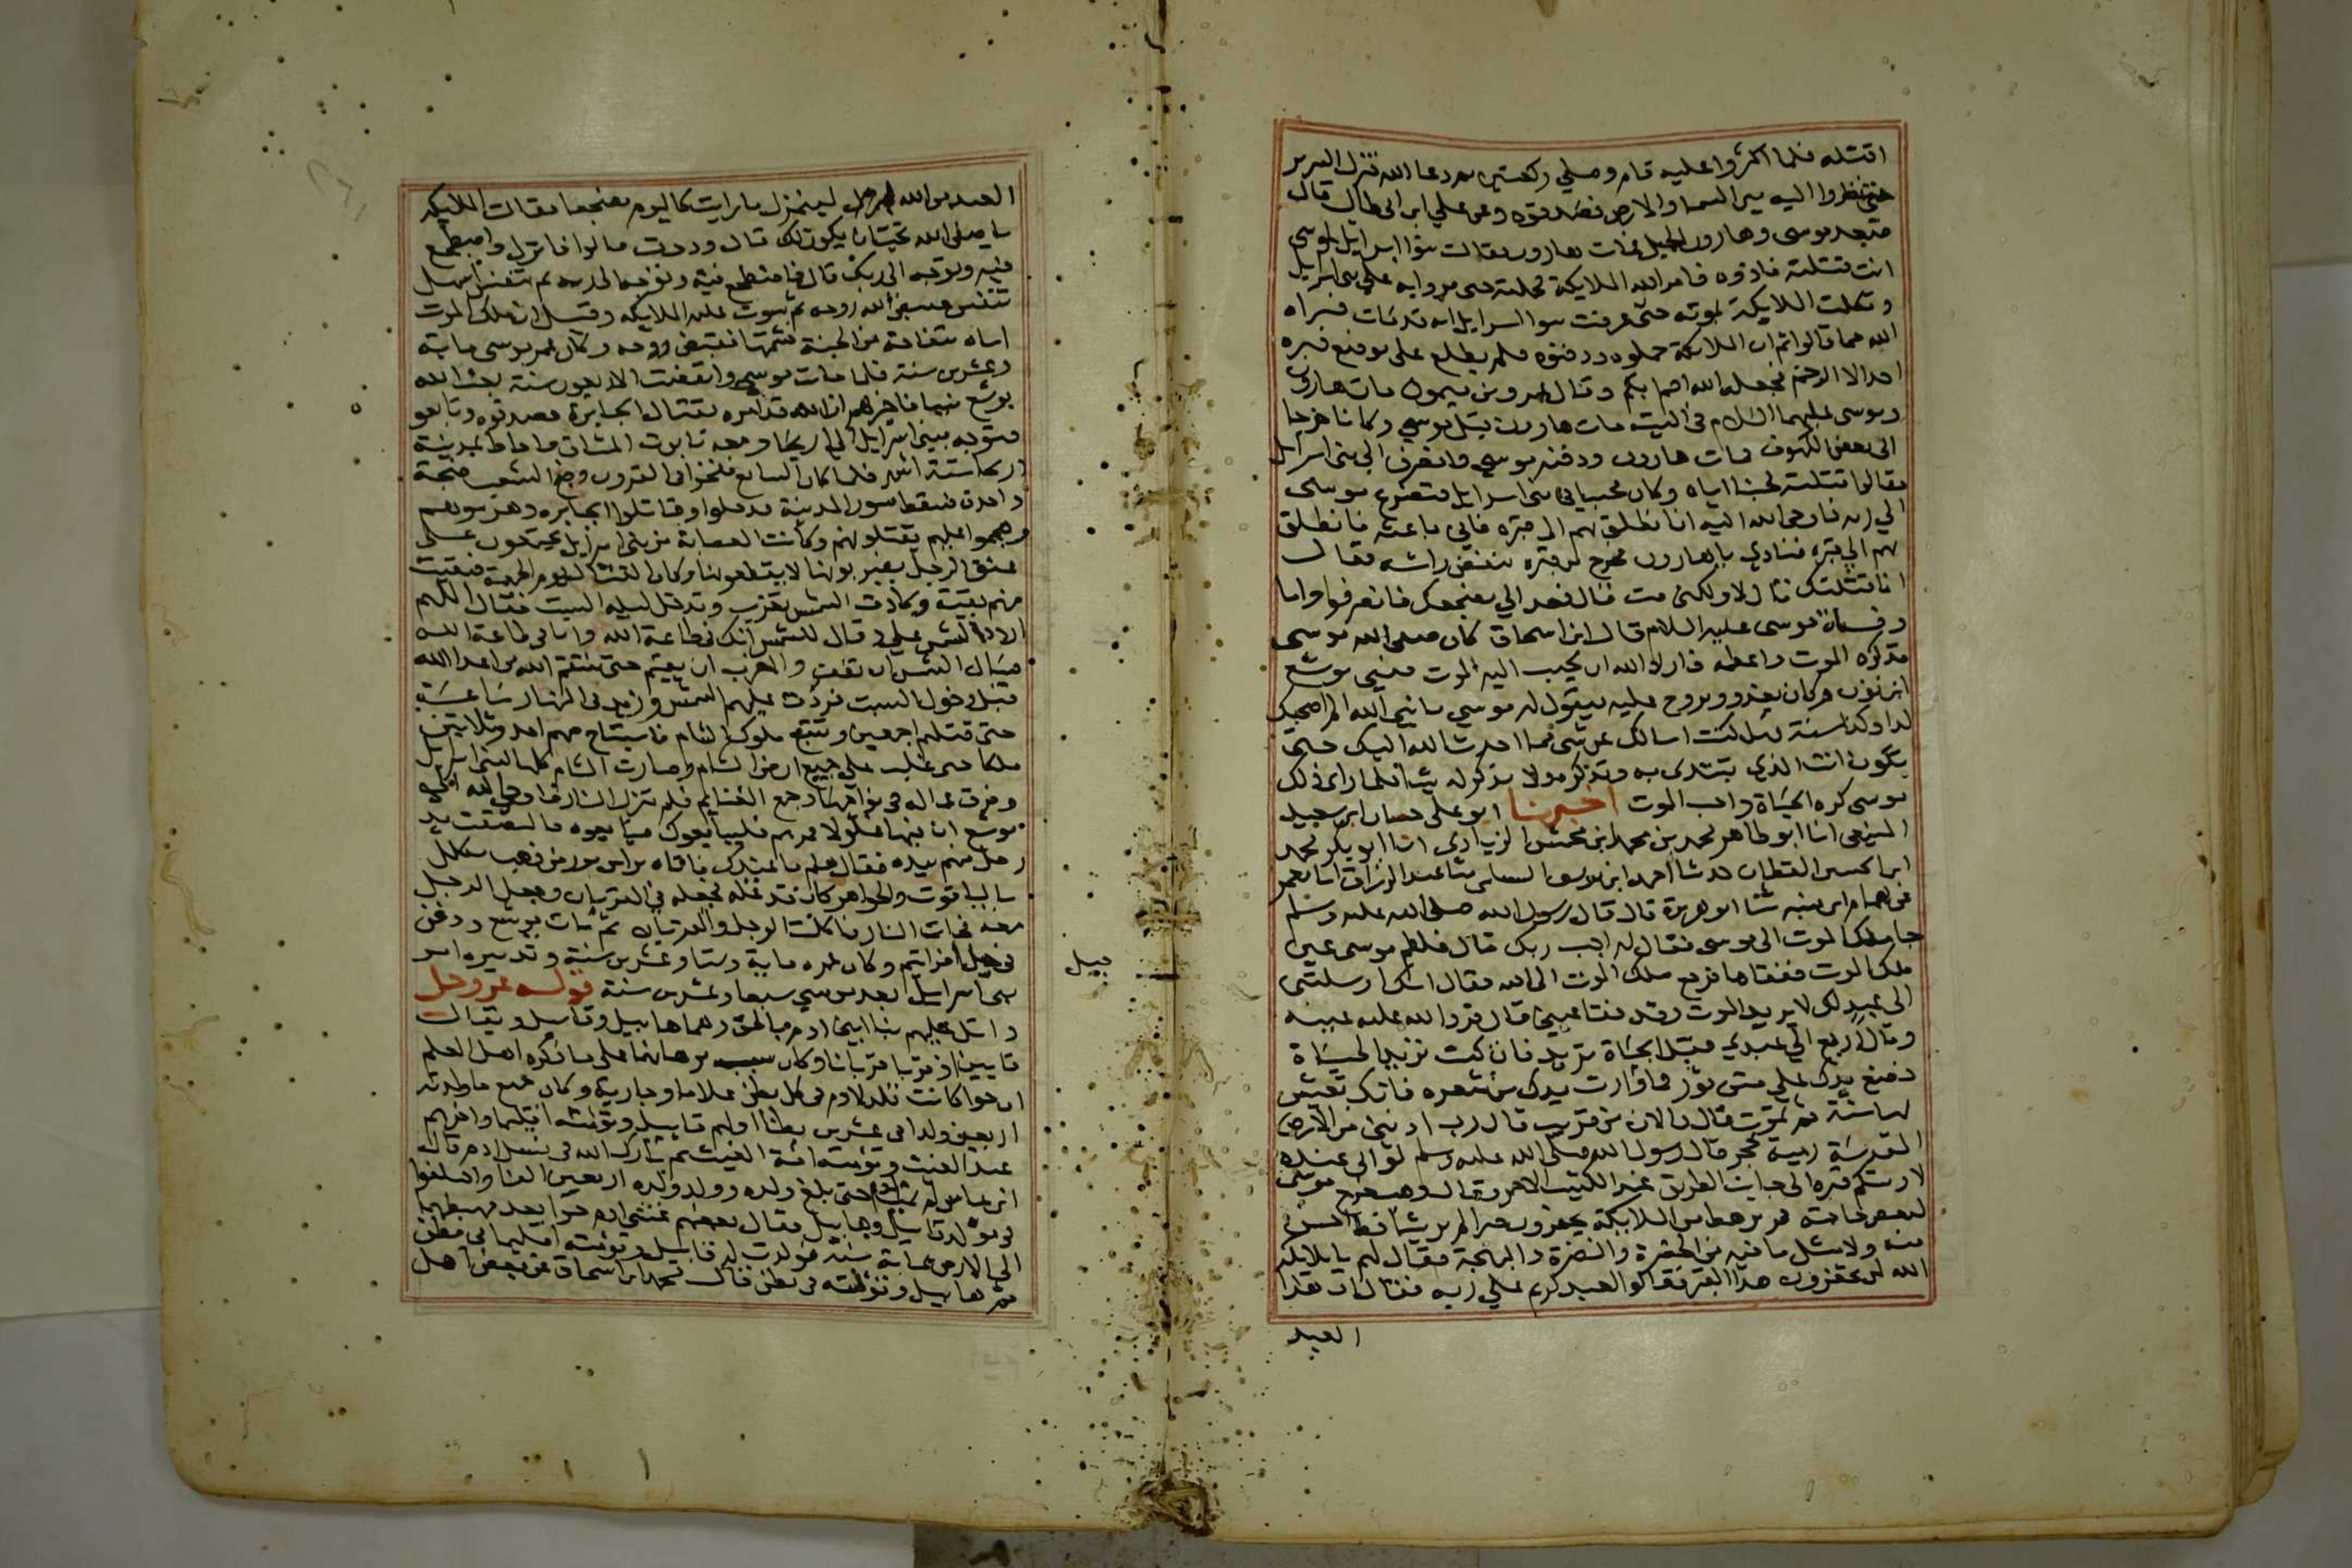 اقتتله فلما اكثروا عليه قام وصلى ركعتين ثم دعا الله فنزل السرير
حتى نظروا اليه بين السما والارض فصدقوه وعن علي ابن ابى طالب قال
صعد موسى وهارون الجبل فمات هارون فقالت بنوا اسرايل لموسى
انت قتلته فاذوه فامر الله الملايكة فحملته حتى مروا به على بنى اسرايل
وتكلمت الملايكة بموته حتى عرفت بنوا اسرايل انه قد مات فبراه
الله مما قالوا ثم ان الملايكة حملوه ودفنوه فلم يطلع على موضع قبره
احد الا الرخم فجعله الله اصم ابكم وقال عمرو بن ميمون مات هارون
وموسى عليهما السلام فى التيه مات هارون قبل موسى وكانا خرجا
الى بعض الكهوف فمات هارون ودفنه موسى وانصرف الى بنى اسرايل
فقالوا قتلته لحبنا اياه وكان محببا فى بنى اسرايل فتضرع موسى
الى ربه فاوحى الله اليه ان انطلق بهم الى قبره فانى باعثه فانطلق
بهم الى قبره فنادى يا هارون فخرج من قبره ينفض راسه فقال
انا قتلتك قال لا ولكنى مت قال فعد الى مضجعك فانصرفوا واما
وفاة موسى عليه السلام قال ابن اسحاق كان صفى الله موسى
قد كره الموت واعظمه فاراد الله ان يحبب اليه الموت فنبى يوشع
ابن نون فكان يغدو ويروح عليه فيقول له موسى يا نبى الله الم اصحبك
كذا وكذا سنة فهل كنت اسالك عن شى مما احدث الله اليك حتى
تكون انت الذى تبتدى به وتذكره ولا يذكر له شيا فلما راى ذلك
موسى كره الحياة واحب الموت اخبرنا ابو على حسان ابن سعيد
المنيعى انا ابو طاهر محمد بن محمد ابن محمش الزيادى انا ابو بكر محمد
ابن الحسين القطان حدثنا احمد ابن يوسف السلمى ثنا عبد الرزاق انا معمر
عن همام ابن منبه ثنا ابو هريرة قال قال رسول الله صلى الله عليه وسلم
جا ملك الموت الى موسى فقال له اجب ربك قال فلطم موسى عين
ملك الموت ففقاها فرجع ملك الموت الى الله فقال انك ارسلتنى
الى عبد لك لا يريد الموت وقد فقا عينى قال فرد الله عليه عينه
وقال ارجع الى عبدى فقل الحياة تريد فان كنت تريد الحياة
فضع يدك على متن ثور فما وارت يدك من شعره فانك تعيش
بها سنة ثم تموت قال فالان من قريب قال رب ادننى من الارض
المقدسة رمية بحجر قال رسول الله صلى الله عليه وسلم لو انى عنده
لاريتكم قبره الى جانب الطريق عند الكثيب الاحمر وقال وهب خرج موسى
لبعض حاجته فمر برهط من الملايكة يحفرون قبرا لم ير شيا قط احسن
منه ولا مثل ما فيه من الخضرة والنضرة والبهجة فقال لهم يا ملايكة
الله لم تحفرون هذا القبر فقالوا لعبد كريم على ربه فقال ان هذا
العبد
العبد من الله لبمنزل ما رايت كاليوم مضجعا فقالت الملايكة
يا صفى الله تحب ان يكون لك قال وددت قالوا فانزل واضطجع
فيه وتوجه الى ربك قال فاضطجع فيه وتوجه الى ربه ثم تنفس اسهل
تنفس فقبض الله روحه ثم سوت عليه الملايكة وقيل ان ملك الموت
اتاه بتفاحة من الجنة فشمها فقبض روحه وكان عمر موسى ماية
وعشرين سنة فلما مات موسى وانقضت الاربعون سنة بعث الله
يوشع نبيا فاخبرهم ان الله قد امره بقتال الجبابرة فصدقوه وتابعوه
فتوجه ببنى اسرايل الى اريحا ومعه تابوت الميثاق فاحاط بمدينة
اريحا ستة اشهر فلما كان السابع نفخوا فى القرون وضج الشعب ضجة
واحدة فسقط سور المدينة فدخلوا وقاتلوا الجبابرة وهزموهم
وهجموا عليهم يقتلونهم وكانت العصابة من بنى اسرايل يجتمعون على
عنق الرجل يضربونها لا يقطعونها وكان القتال يوم الجمعة فبقيت
منهم بقية وكادت الشمس تغرب وتدخل ليلة السبت فقال اللهم
اردد الشمس على وقال للشمس انك فى طاعة الله وانا فى طاعة الله
فسال الشمس ان تقف والقمر ان يقيم حتى ينتقم الله من اعدا الله
قبل دخول السبت فردت عليهم الشمس وزيد فى النهار ساعة
حتى قتلهم اجمعين وتتبع ملوك الشام فاستباح منهم احد وثلاثين
ملكا حتى غلب على جميع ارض الشام وصارت الشام كلها لبنى اسرايل
وفرق عماله فى نواحيها وجمع الغنايم فلم تنزل النار فاوحى الله الى
يوشع ان فيها غلولا فمرهم فليبايعوك فبايعوه فالتصقت يد
رجل منهم بيده فقال هلم ما عندك فاتاه براس ثور من ذهب مكلل
بالياقوت والجواهر كان قد غله فجعله فى القربان وجعل الرجل
معه فجات النار فاكلت الرجل والقربان ثم مات يوشع ودفن
فى جبل افراثيم وكان عمره ماية وستا وعشرين سنة وتدبيره امر
جبيل
بنى اسرايل بعد موسى سبعا وعشرين سنة قوله عز وجل
واتل عليهم نبا ابنى ادم بالحق وهما هابيل وقابيل ويقال
قايين اذ قربا قربانا وكان سبب قربانهما على ما ذكره اهل العلم
ان حوا كانت تلد لادم فى كل بطن غلاما وجارية وكان جميع ما ولدته
اربعين ولدا فى عشرين بطنا اولهم قابيل وتوئمته اقليما واخرهم
عبد المغيث وتوئمته امة المغيث ثم بارك الله فى نسل ادم قال
ابن عباس لم يمت ادم حتى بلغ ولده وولد ولده اربعين الفا واختلفوا
فى مولد قابيل وهابيل فقال بعضهم غشى ادم حوا بعد مهبطهما
الى الارض بماية سنة فولدت له قابيل وتوئمته اقليما فى بطن
ثم هابيل وتوئمته فى بطن فقال محمد ابن اسحاق عن بعض اهل